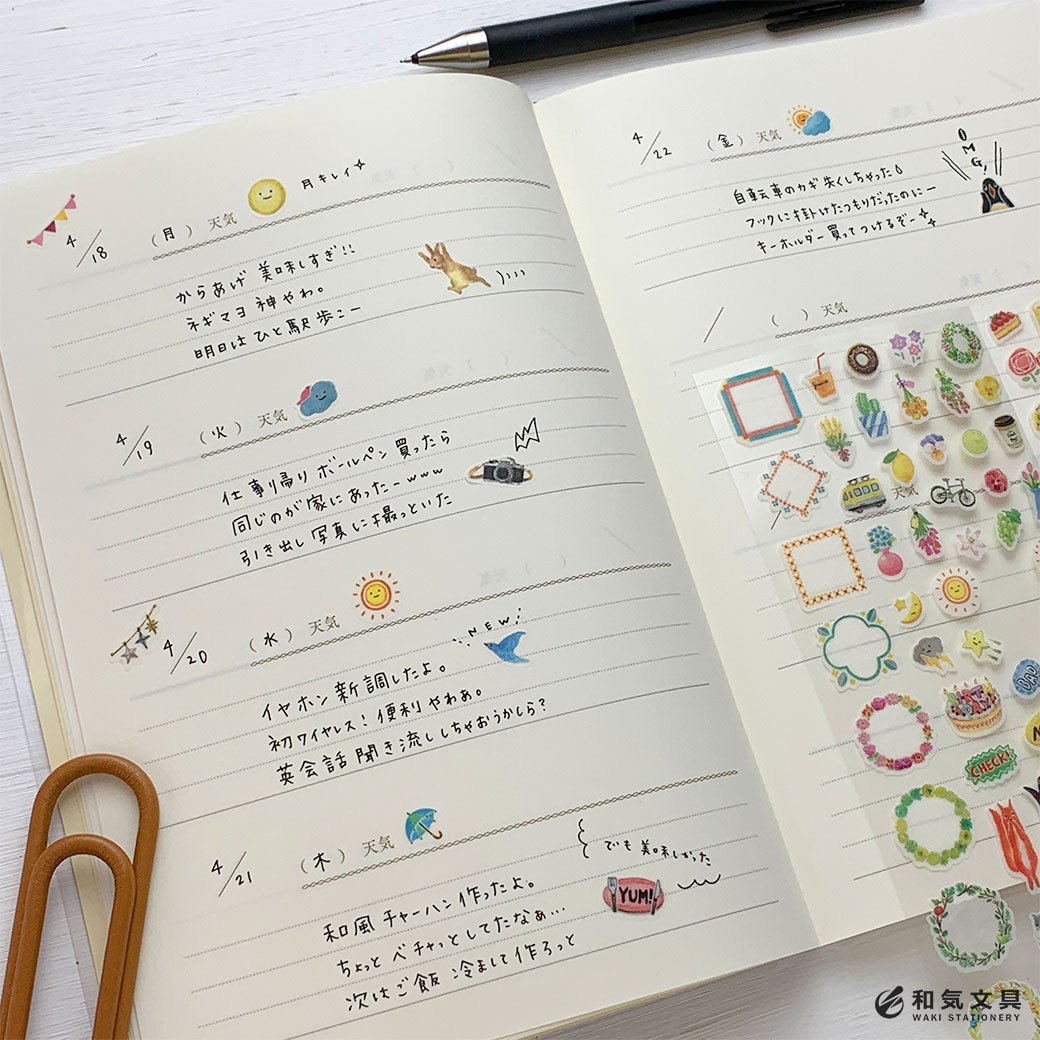 4/18 (月) 天気 月キレイ
からあげ 美味しすぎ!!
ネギマヨ 神やわ。
明日は ひと駅 歩こー
4/19 (火) 天気
仕事り帰り ボールペン 買ったら
同じのが 家に あったーwww
引き出し 写真に 撮っといた
4/20 (水) 天気
NEW!
イヤホン 新調したよ。
初ワイヤレス! 便利やわぁ。
英会話 聞き流し しちゃおうかしら?
4/21 (木) 天気
でも 美味しかった
YUM!
和風 チャーハン 作ったよ。
ちょっと ベチャっとしてたなぁ…
次は ご飯 冷まして 作ろっと
4/22 (金) 天気
OMG,
自転車のカギ 失くしちゃった
フックに 掛けたつもりだったのにー
キーホルダー 買って つけるぞー
/ ( ) 天気
天気
BAD
CHECK!
和気文具
WAKI STATIONERY